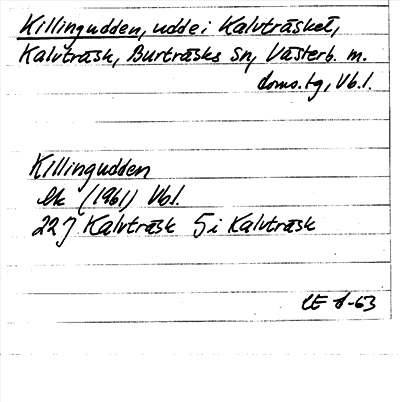 Killingudden, udde i Kalvträsket,
Kalvträsk, Burträsks sn, Västerb. m.
doms.tg, Vb.l.
Killingudden
Ek (1961) Vb.l.
22J Kalvträsk 5i Kalvträsk
CE 8-63